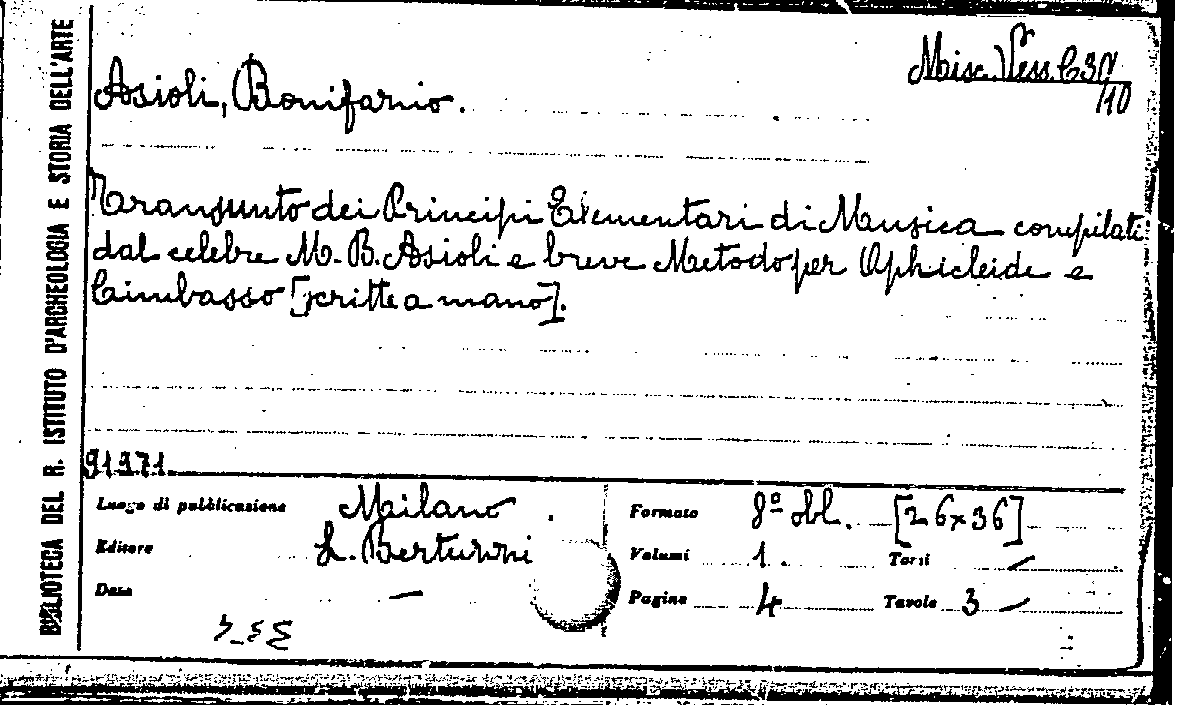 BIBLIOTECA DEL R. ISTITUTO D'ARCHEOLOGIA E STORIA DELL'ARTE
Misc. Vess. C 30
/10
Asioli, Bonifazio.
Transunto dei Principi Elementari di Musica compilati
dal celebre M. B. Asioli e breve Metodo per Ophicleide e
Cimbasso [scritte a mano].
91371
Luogo di pubblicazione Milano.
Editore L. Bertuzzi
Data —
Formato 8º obl. [26x36]
Volumi 1. Tomi —
Pagine 4 Tavole 3 —